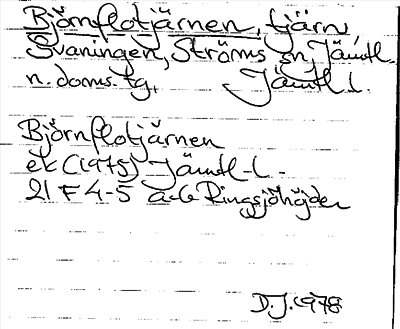 Björnflotjärnen, tjärn,
Svaningen, Ströms sn, Jämtl.
n. doms. tg, Jämtl l.
Björnflotjärnen
ek (1975) Jämtl-l-
21 F 4-5 a-c Ringsjöhöjden
D.J. 1978